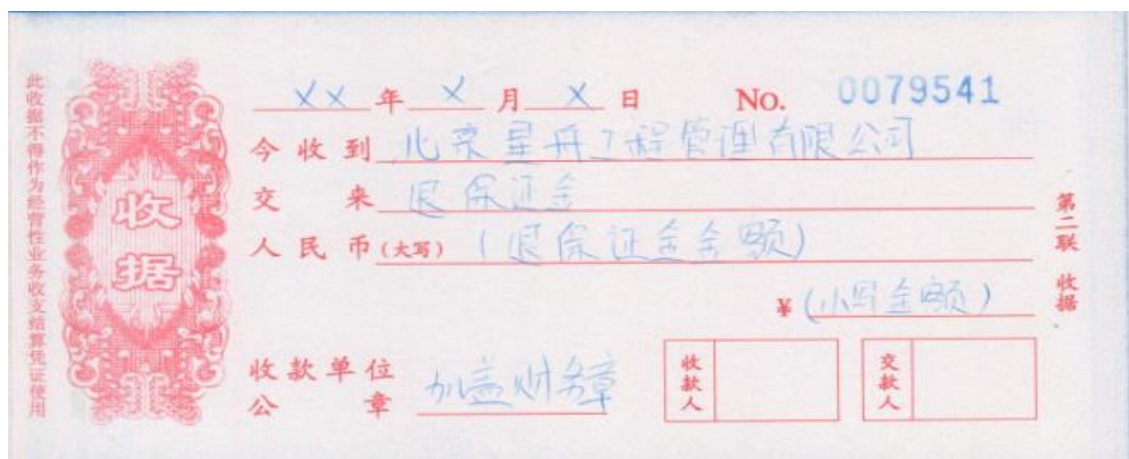 此收据不得作为经营性业务收支结算凭证使用
收据
XX年X月X日 No. 0079541
今收到 北京星舟工程管理有限公司
交来 退保证金
人民币(大写) (退保证金金额)
¥ (小写金额)
收款单位公章 加盖财务章
收款人
交款人
第二联 收据